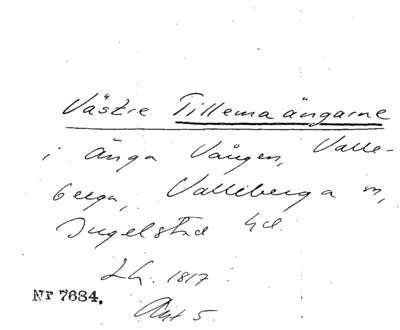 Västre Tillema ängarne
i Änga Vången, Valle-
berga, Valleberga sn,
Ingelstad hd.
LH. 1817
Nr 7684.
Akt 5.